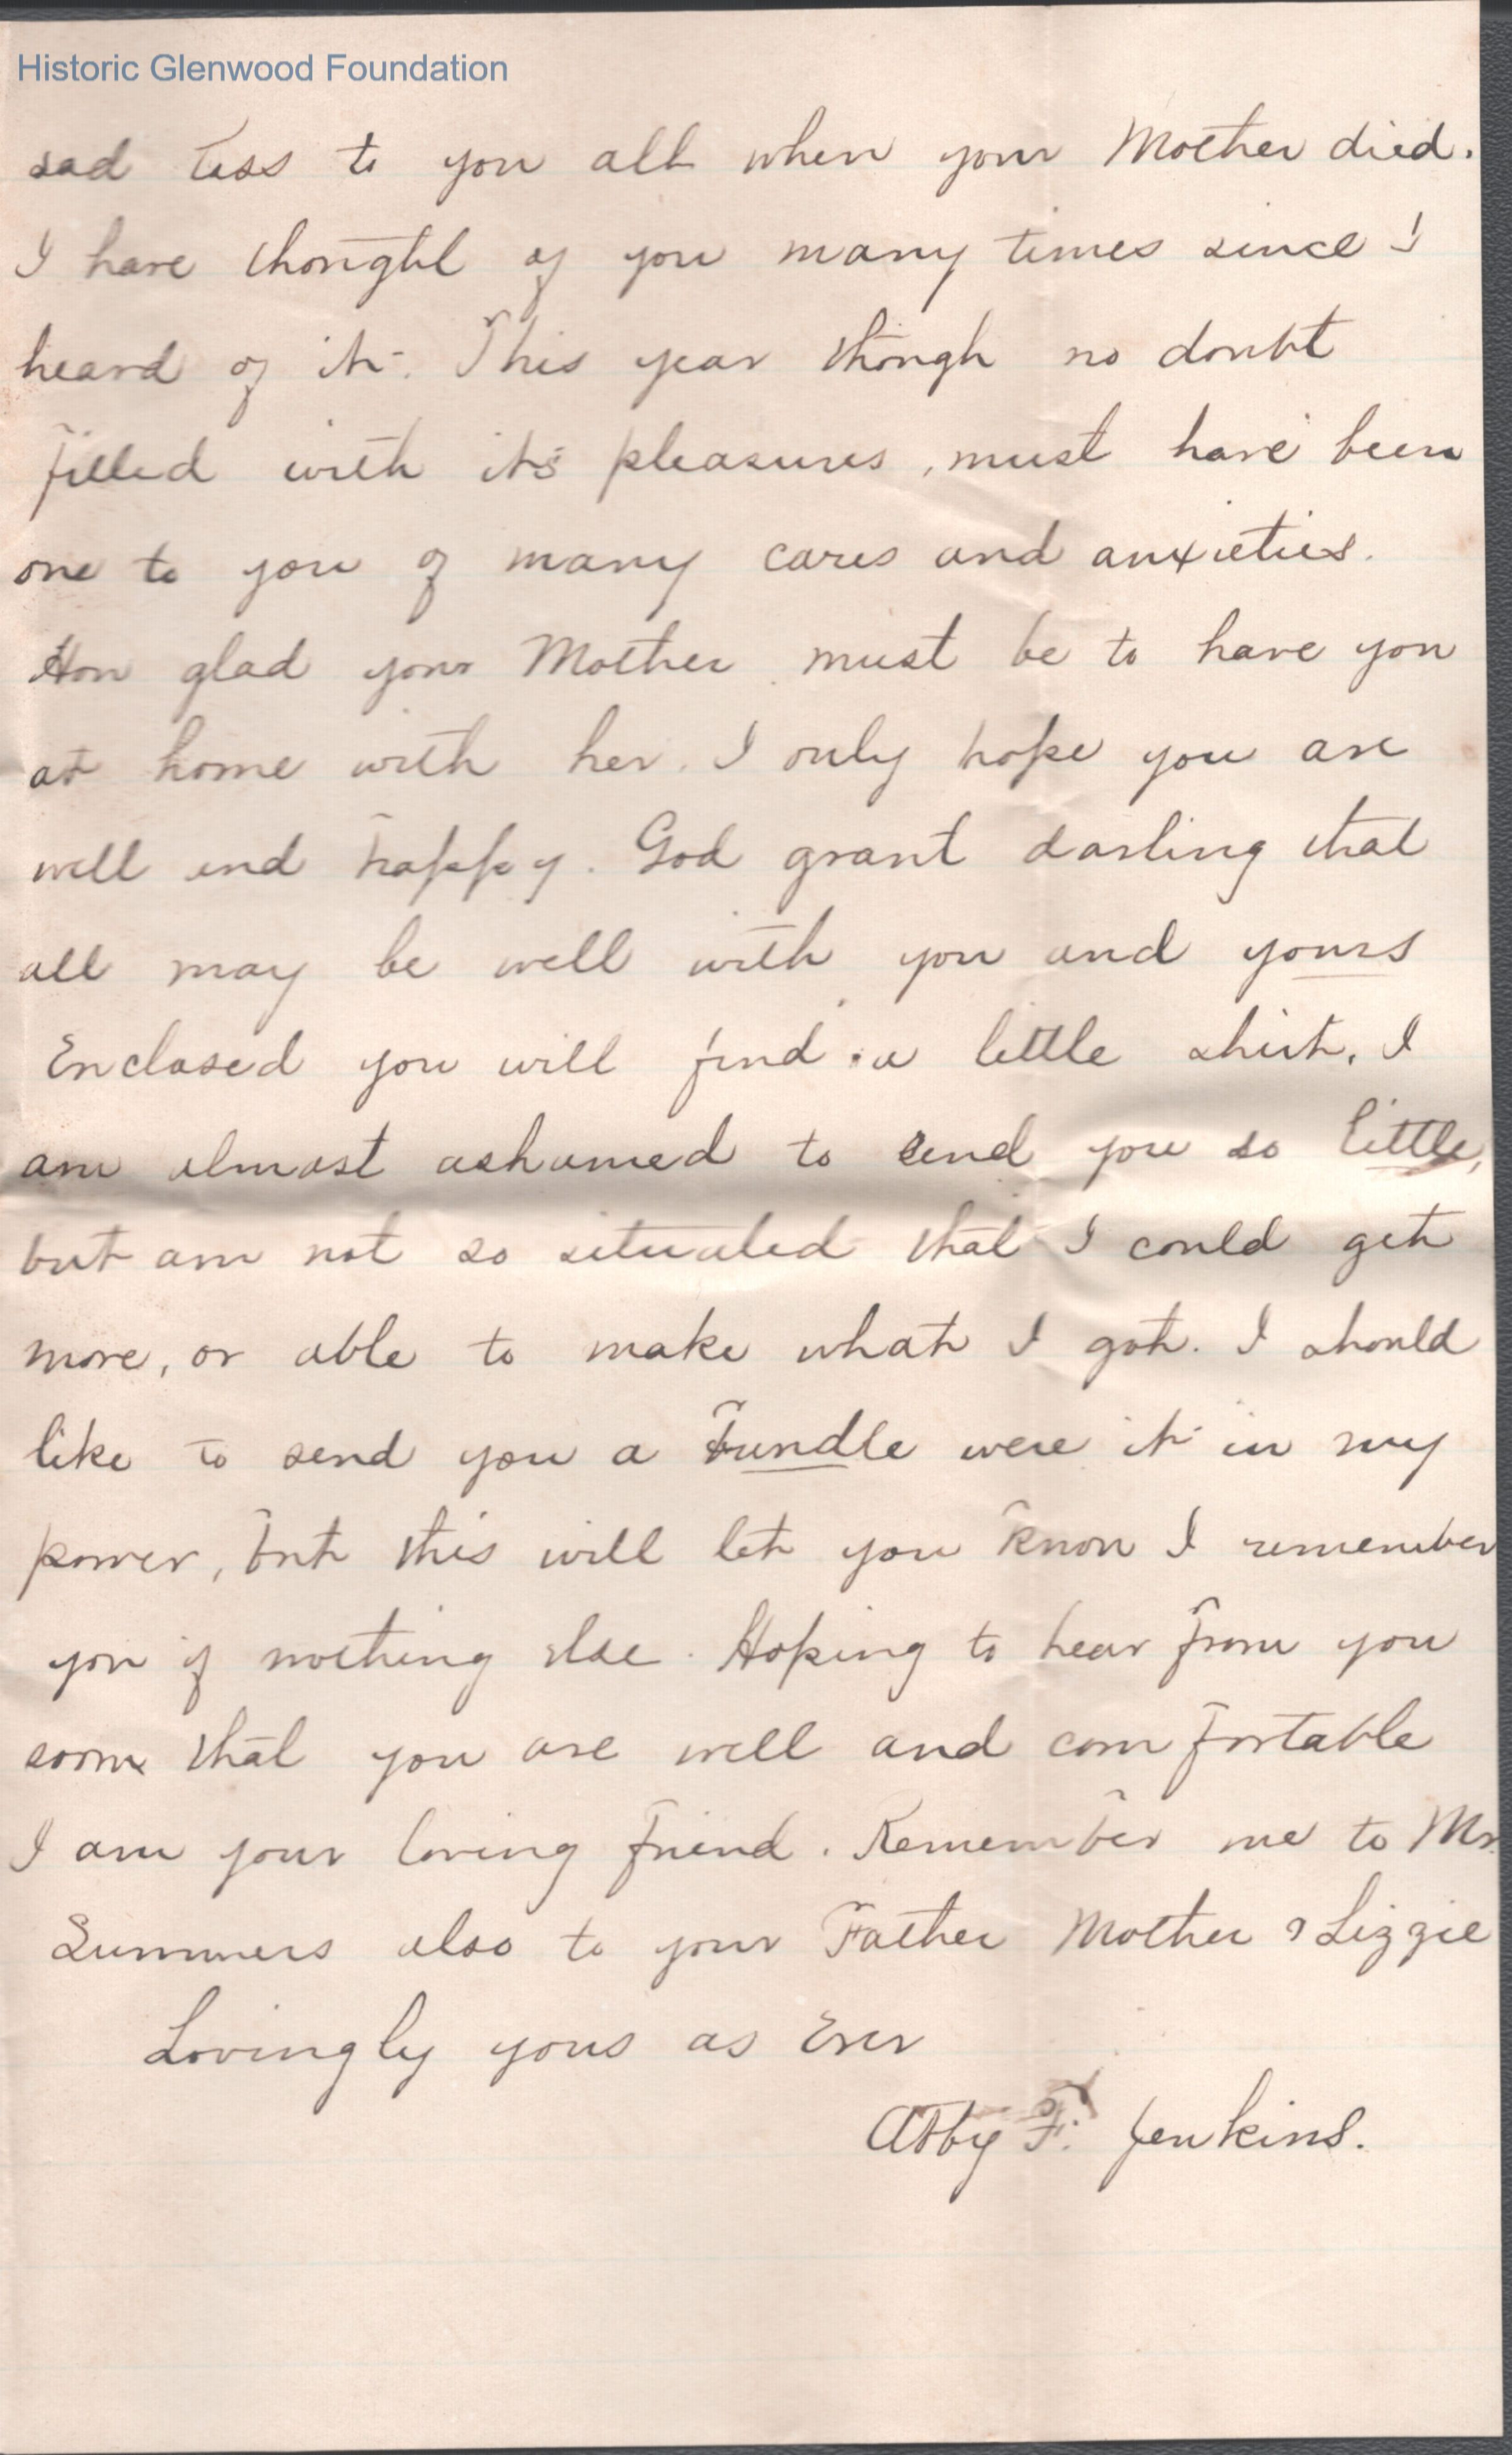 Historic Glenwood Foundation
sad loss to you all when your Mother died.
I have thought of you many times since I
heard of it. This year though no doubt
filled with its pleasures, must have been
one to you of many cares and anxieties.
How glad your Mother must be to have you
at home with her. I only hope you are
well and happy. God grant darling that
all may be well with you and yours
Enclosed you will find a little shirt, I
am almost ashamed to send you so little,
but am not so situated that I could get
more, or able to make what I got. I should
like to send you a bundle were it in my
power, but this will let you know I remember
you if nothing else. Hoping to hear from you
soon that you are well and comfortable
I am your loving friend. Remember me to Mr.
Summers also to your Father Mother & Lizzie
Lovingly yours as Ever
Abby F. Jenkins.